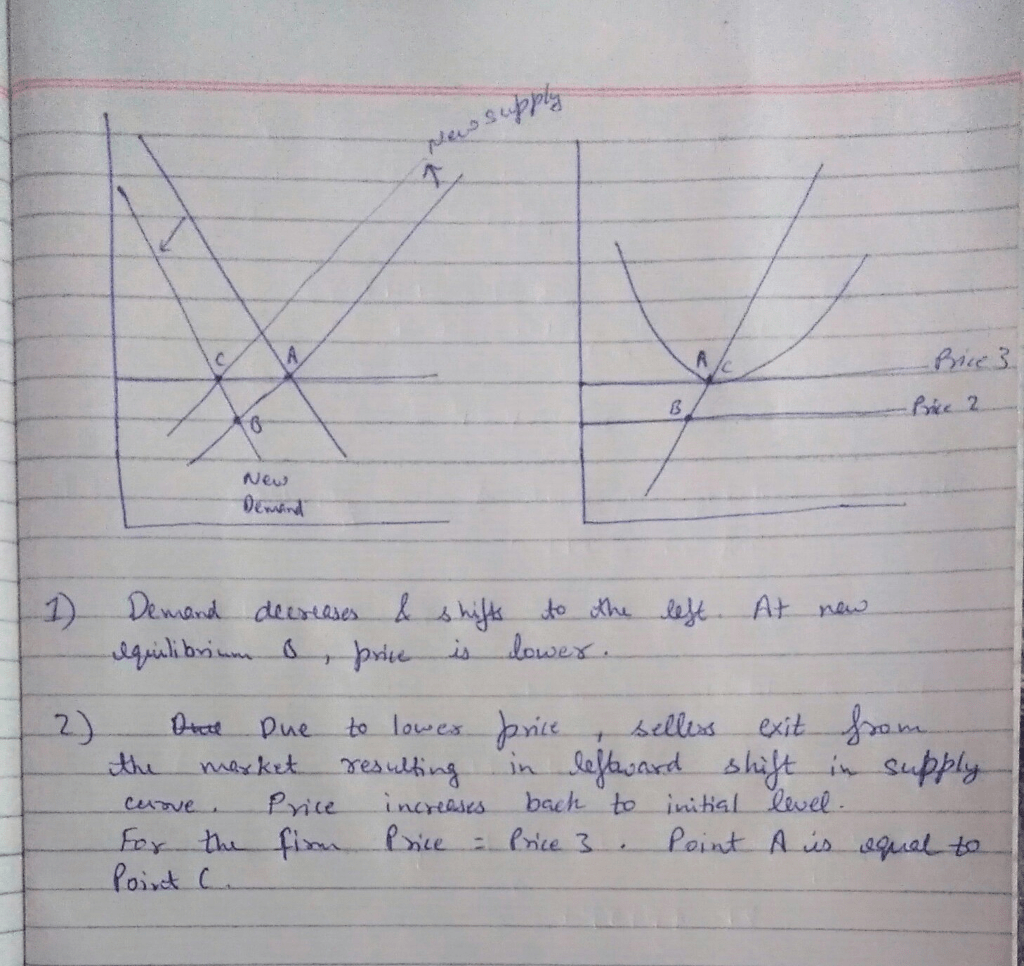 New supply
C
A
B
New
Demand
A
C
Price 3
B
Price 2
1) Demand decreases & shifts to the left. At new
equilibrium B, price is lower.
2) Due to lower price, sellers exit from
the market resulting in leftward shift in supply
curve. Price increases back to initial level.
For the firm Price = Price 3. Point A is equal to
Point C.